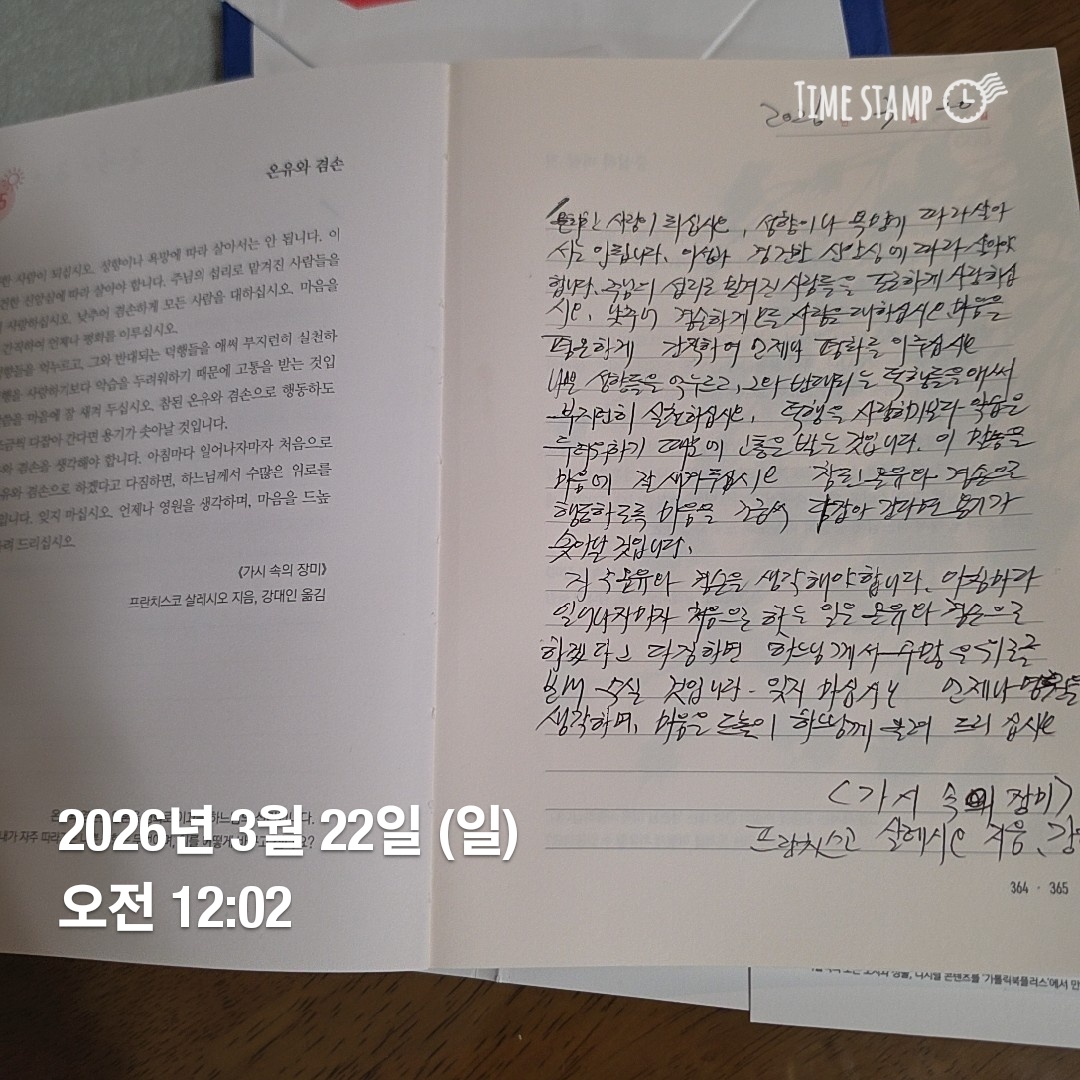 TIME STAMP
5
온유와 겸손
한 사람이 되십시오. 성향이나 욕망에 따라 살아서는 안 됩니다. 이
건한 신앙심에 따라 살아야 합니다. 주님의 섭리로 맡겨진 사람들을
사랑하십시오. 낮추어 겸손하게 모든 사람을 대하십시오. 마음을
간직하여 언제나 평화를 이루십시오.
향들을 억누르고, 그와 반대되는 덕행들을 애써 부지런히 실천하
행을 사랑하기보다 악습을 두려워하기 때문에 고통을 받는 것입
씀을 마음에 잘 새겨 두십시오. 참된 온유와 겸손으로 행동하도
조금씩 다잡아 간다면 용기가 솟아날 것입니다.
와 겸손을 생각해야 합니다. 아침마다 일어나자마자 처음으로
유와 겸손으로 하겠다고 다짐하면, 하느님께서 수많은 위로를
입니다. 잊지 마십시오. 언제나 영원을 생각하며, 마음을 드높
려 드리십시오.
《가시 속의 장미》
프란치스코 살레시오 지음, 강대인 옮김
2026
사람이 되십시오, 성향이나 욕망에 따라 살아
서는 안됩니다. 이성과 경건한 신앙심에 따라 살아야
합니다. 주님의 섭리로 맡겨진 사람들을 사랑하십
시오, 낮추어 겸손하게 모든 사람을 대하십시오 마음을
평온하게 간직하여 언제나 평화를 이루십시오
나쁜 성향들을 억누르고, 그와 반대되는 덕행들을 애써
부지런히 실천하십시오, 덕행을 사랑하기보다 악습을
두려워하기 때문에 고통을 받는 것입니다. 이 말씀을
마음에 잘 새겨두십시오 참된 온유와 겸손으로
행동하도록 마음을 조금씩 다잡아 간다면 용기가
솟아날 것입니다.
온유와 겸손을 생각해야 합니다. 아침마다
일어나자마자 처음으로 하는 일은 온유와 겸손으로
하겠다고 다짐하면 하느님께서 수많은 위로를
주실 것입니다. 잊지 마십시오 언제나 영원을
생각하며, 마음을 드높이 하느님께 올려 드리십시오
<가시 속의 장미>
프란치스코 살레시오 지음, 강
364 · 365
2026년 3월 22일 (일)
오전 12:02